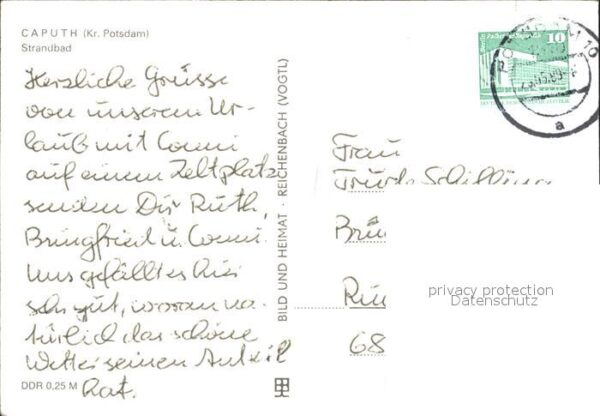 CAPUTH (Kr. Potsdam)
Strandbad
Herzliche Grüsse
von unserem Ur-
laub mit Conni
auf einem Zeltplatz
senden Dir Ruth,
Bringfried u. Conni.
Uns gefällt es hier
sehr gut, woran na-
türlich das schöne
Wetter seinen Anteil
hat.
DDR 0,25 M
BILD UND HEIMAT · REICHENBACH (VOGTL)
10
a
Frau
Trude Schilling
Brü
68
privacy protection
Datenschutz